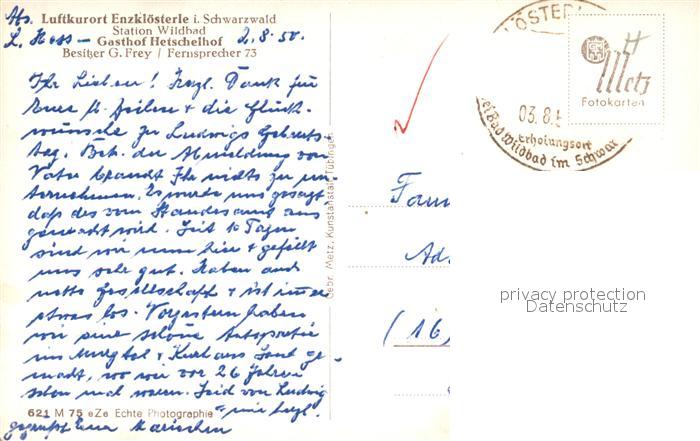 Abs. Luftkurort Enzklösterle i. Schwarzwald
Station Wildbad
L. Hess – Gasthof Hetschelhof 2.8.50.
Besitzer G. Frey / Fernsprecher 73
Ihr Lieben! Herzl. Dank für
Eure lb. Zeilen & die Glück-
wünsche zu Ludwigs Geburts-
tag. Betr. der Abmeldung von
Vater braucht Ihr nichts zu un-
ternehmen. Es wurde uns gesagt
daß des vom Standesamt aus
gemacht wird. Seit 10 Tagen
sind wir nun hier & gefällt
uns sehr gut. Haben auch
nette Gesellschaft & ist immer
etwas los. Vorgestern haben
wir eine schöne Autopartie
ins Murgtal & Kurhaus Sand ge-
macht, wo wir vor 26 Jahren
schon mal waren. Seid von Ludwig
& mir herzl.
gegrüßt Eure Mariechen
621 M 75 eZe Echte Photographie
Gebr. Metz, Kunstanstalt, Tübingen
KLÖSTERL
03.8.5
Erholungsort
bei Bad Wildbad im Schwar
Metz
Fotokarten
Fam
Ad.
(16)
privacy protection
Datenschutz